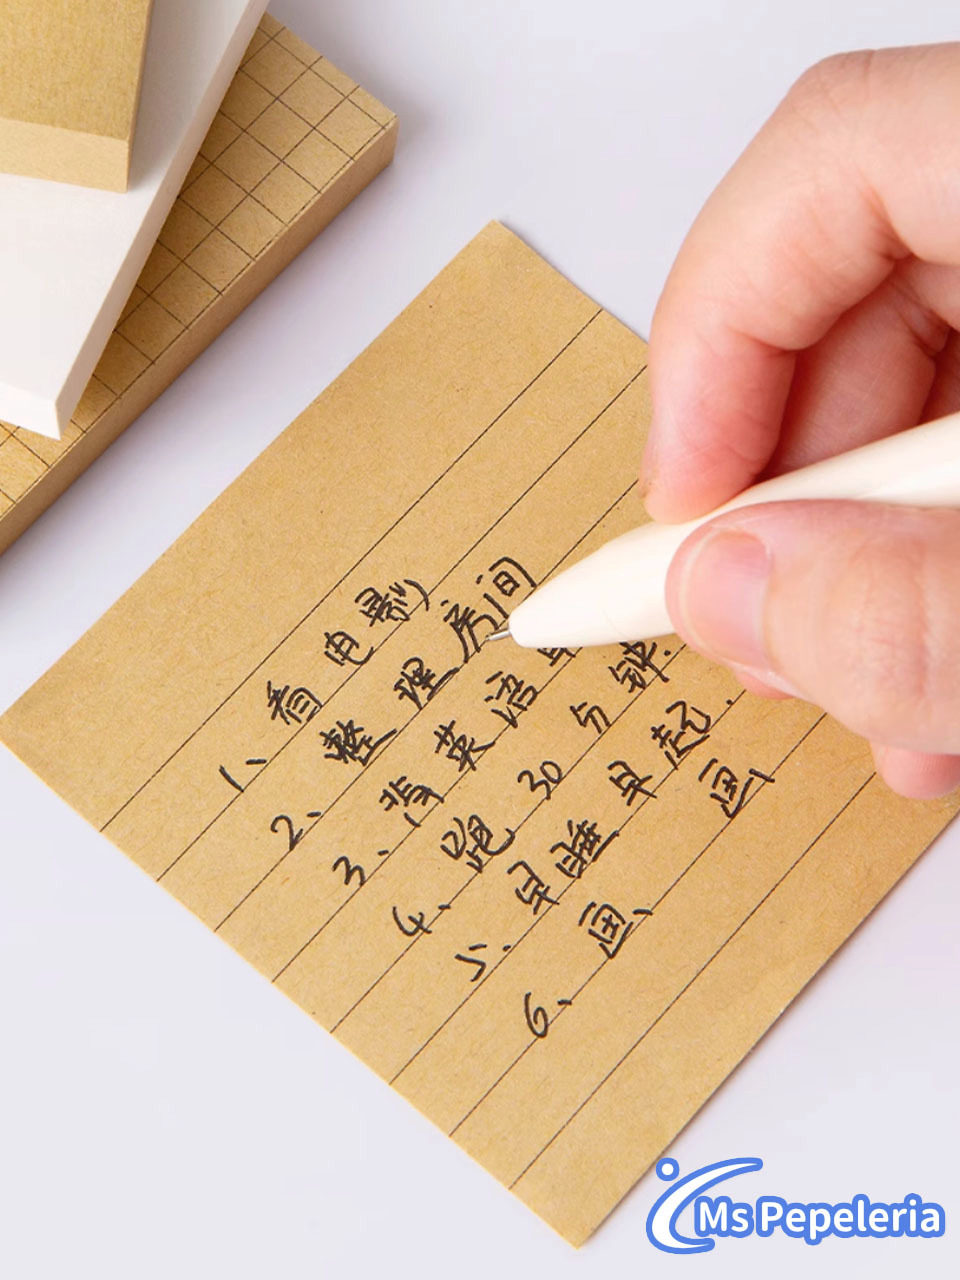 1、看电影
2、整理房间
3、背英语
4、跑30分钟.
5、早睡早起.
6、画、画
Ms Pepeleria